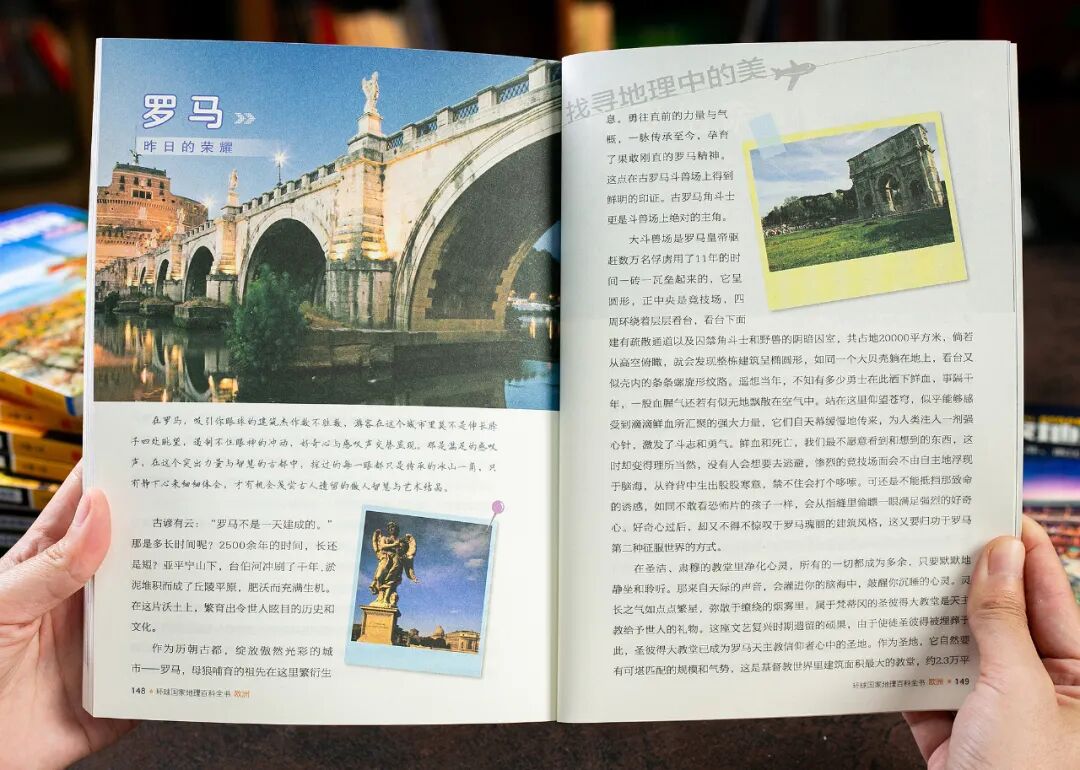 罗马
昨日的荣耀
在罗马，吸引你眼球的建筑杰作数不胜数，游客在这个城市里莫不是伸长脖
子四处眺望，遏制不住眼神的冲动，好奇心与感叹声交替显现。那是满足的感叹
声，在这个突出力量与智慧的古都中，掠过的每一眼都只是传承的冰山一角，只
有静下心来细细体会，才有机会浅尝古人遗留的傲人智慧与艺术结晶。
古谚有云：“罗马不是一天建成的。”
那是多长时间呢？2500余年的时间，长还
是短？亚平宁山下，台伯河冲刷了千年，淤
泥堆积而成了丘陵平原，肥沃而充满生机。
在这片沃土上，繁育出令世人眩目的历史和
文化。
作为历朝古都，绽放傲然光彩的城
市——罗马，母狼哺育的祖先在这里繁衍生
148 环球国家地理百科全书 欧洲
找寻地理中的美
息。勇往直前的力量与气
概，一脉传承至今，孕育
了果敢刚直的罗马精神。
这点在古罗马斗兽场上得到
鲜明的印证。古罗马角斗士
更是斗兽场上绝对的主角。
大斗兽场是罗马皇帝驱
赶数万名俘虏用了11年的时
间一砖一瓦垒起来的，它呈
圆形，正中央是竞技场，四
周环绕着层层看台，看台下面
建有疏散通道以及囚禁角斗士和野兽的阴暗囚室，共占地20000平方米，倘若
从高空俯瞰，就会发现整栋建筑呈椭圆形，如同一个大贝壳躺在地上，看台又
似壳内的条条螺旋形纹路。遥想当年，不知有多少勇士在此洒下鲜血，事隔千
年，一股血腥气还若有似无地飘散在空气中。站在这里仰望苍穹，似乎能够感
受到滴滴鲜血所汇聚的强大力量，它们自天幕缓慢地传来，为人类注入一剂强
心针，激发了斗志和勇气。鲜血和死亡，我们最不愿意看到和想到的东西，这
时却变得理所当然，没有人会想要去逃避，惨烈的竞技场面会不由自主地浮现
于脑海，从脊背中生出股股寒意，禁不住会打个哆嗦。可还是不能抵挡那致命
的诱惑，如同不敢看恐怖片的孩子一样，会从指缝里偷瞄一眼满足强烈的好奇
心。好奇心过后，却又不得不惊叹于罗马瑰丽的建筑风格，这又要归功于罗马
第二种征服世界的方式。
在圣洁、肃穆的教堂里净化心灵，所有的一切都成为多余，只要默默地
静坐和聆听。那来自天际的声音，会灌进你的脑海中，敲醒你沉睡的心灵。灵
长之气如点点繁星，弥散于缭绕的烟雾里，属于梵蒂冈的圣彼得大教堂是天主
教给予世人的礼物。这座文艺复兴时期遗留的硕果，由于使徒圣彼得被埋葬于
此，圣彼得大教堂已成为罗马天主教信仰者心中的圣地。作为圣地，它自然要
有可堪匹配的规模和气势，这是基督教世界里建筑面积最大的教堂，约2.3万平
环球国家地理百科全书 欧洲 149